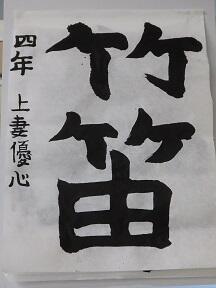 竹笛
四年 上妻優心